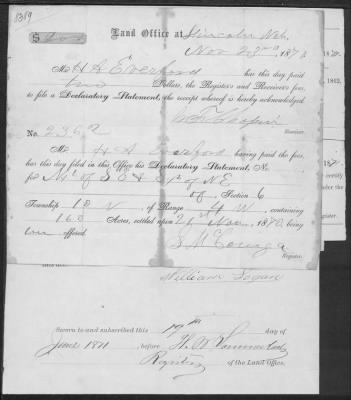 8389
$ 2.00 Land Office at Lincoln Neb.
Nov 23rd, 187
Mr. H A Everford has this day paid
two Dollars, the Register and Receiver's fees,
to file a Declaratory Statement, the receipt whereof is hereby acknowledged.
Receiver.
No. 2362
Mr. H A Everford having paid the fees,
has this day filed in this Office his Declaratory Statement, No.
for N½ of S E & S½ of N E
of Section 6
Township 18 N, of Range 4 W, containing
160 Acres, settled upon 21st Nov, 1870, being
offered.
Register.
William Logan
Sworn to and subscribed this 19th day of
June 1871, before
Register of the Land Office.
1862,
187